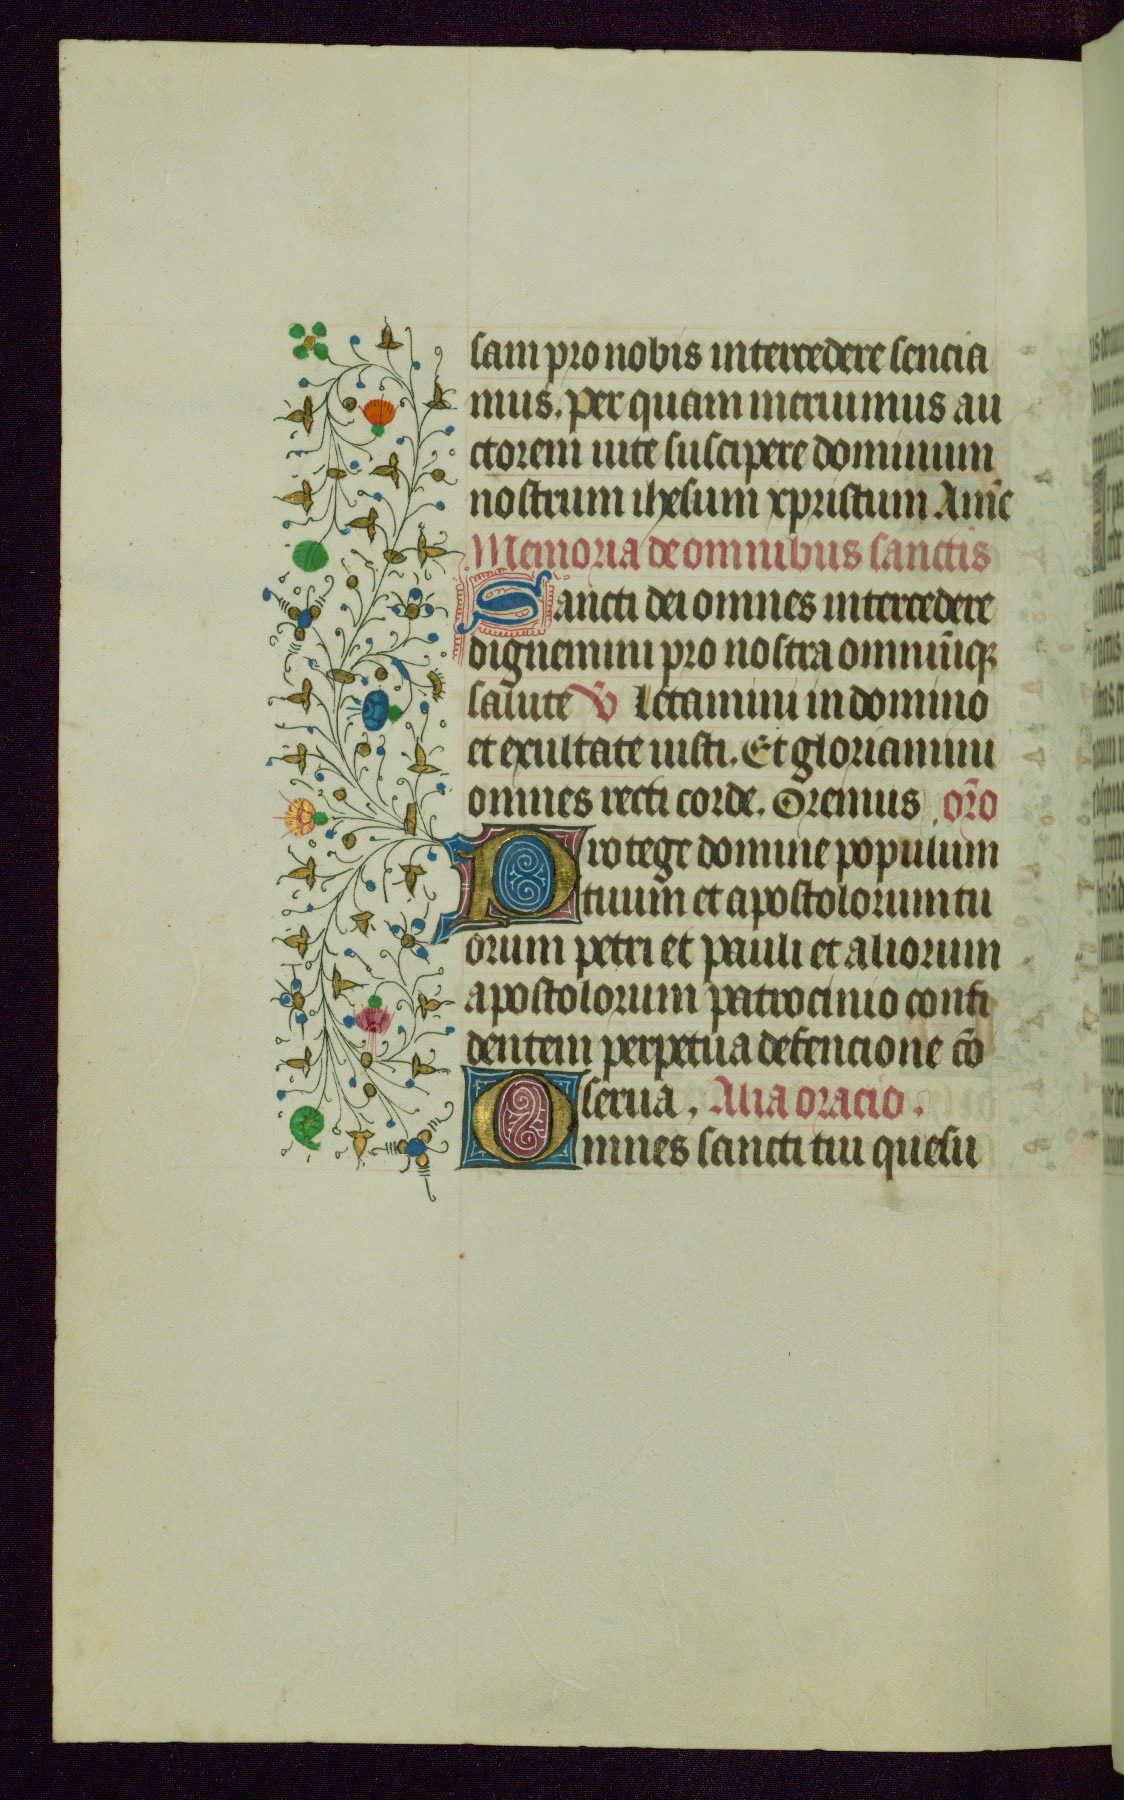 sam pro nobis intercedere sencia
mus. per quam meruimus au
ctorem uite suscipere dominum
nostrum ihesum xpristum Amē
Memoria de omnibus sanctis
Sancti dei omnes intercedere
dignemini pro nostra omniūq;
salute V Letamini in domino
et exultate iusti. Et gloriamini
omnes recti corde. Oremus oro̅
Protege domine populum
tuum et apostolorum tu
orum petri et pauli et aliorum
apostolorum patrocinio confi
dentem perpetua defencione cō
serua. Alia oracio.
Omnes sancti tui quesu